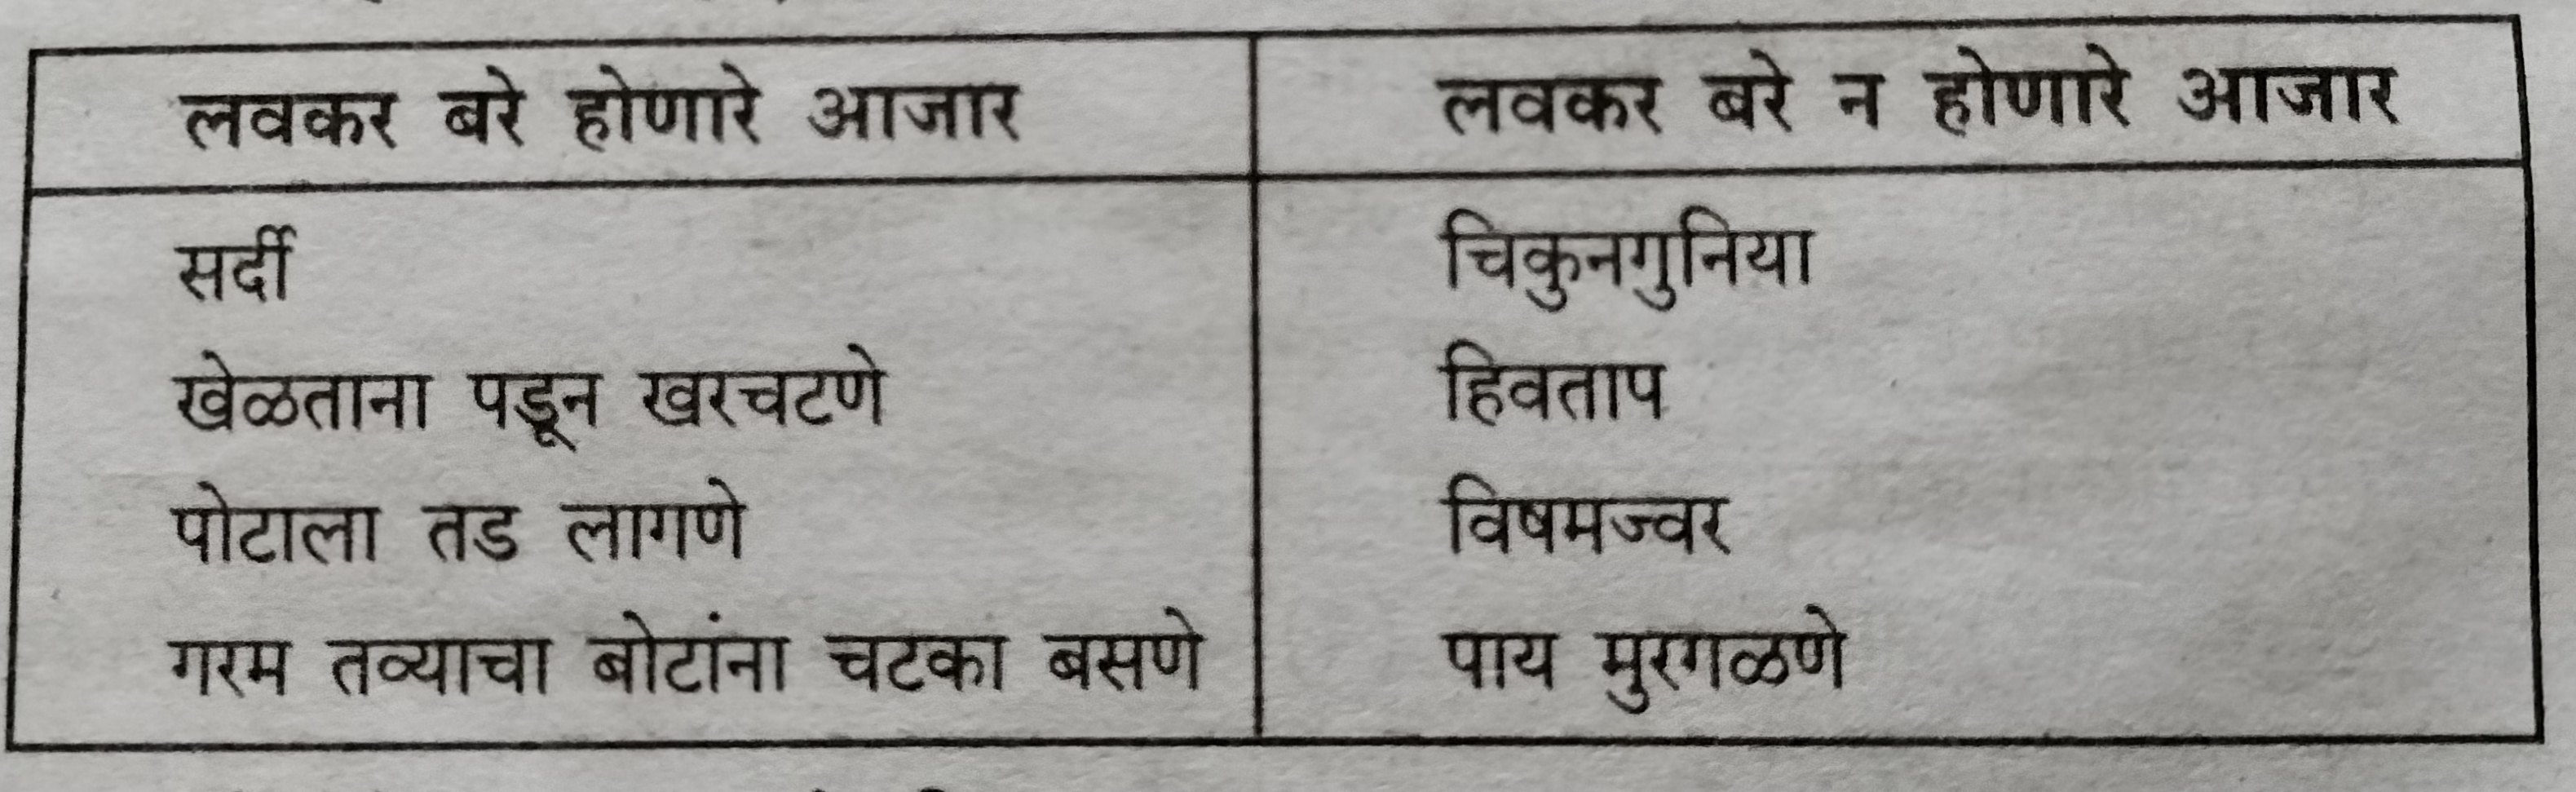 लवकर बरे होणारे आजार लवकर बरे न होणारे आजार
सर्दी चिकुनगुनिया
खेळताना पडून खरचटणे हिवताप
पोटाला तड लागणे विषमज्वर
गरम तव्याचा बोटांना चटका बसणे पाय मुरगळणे